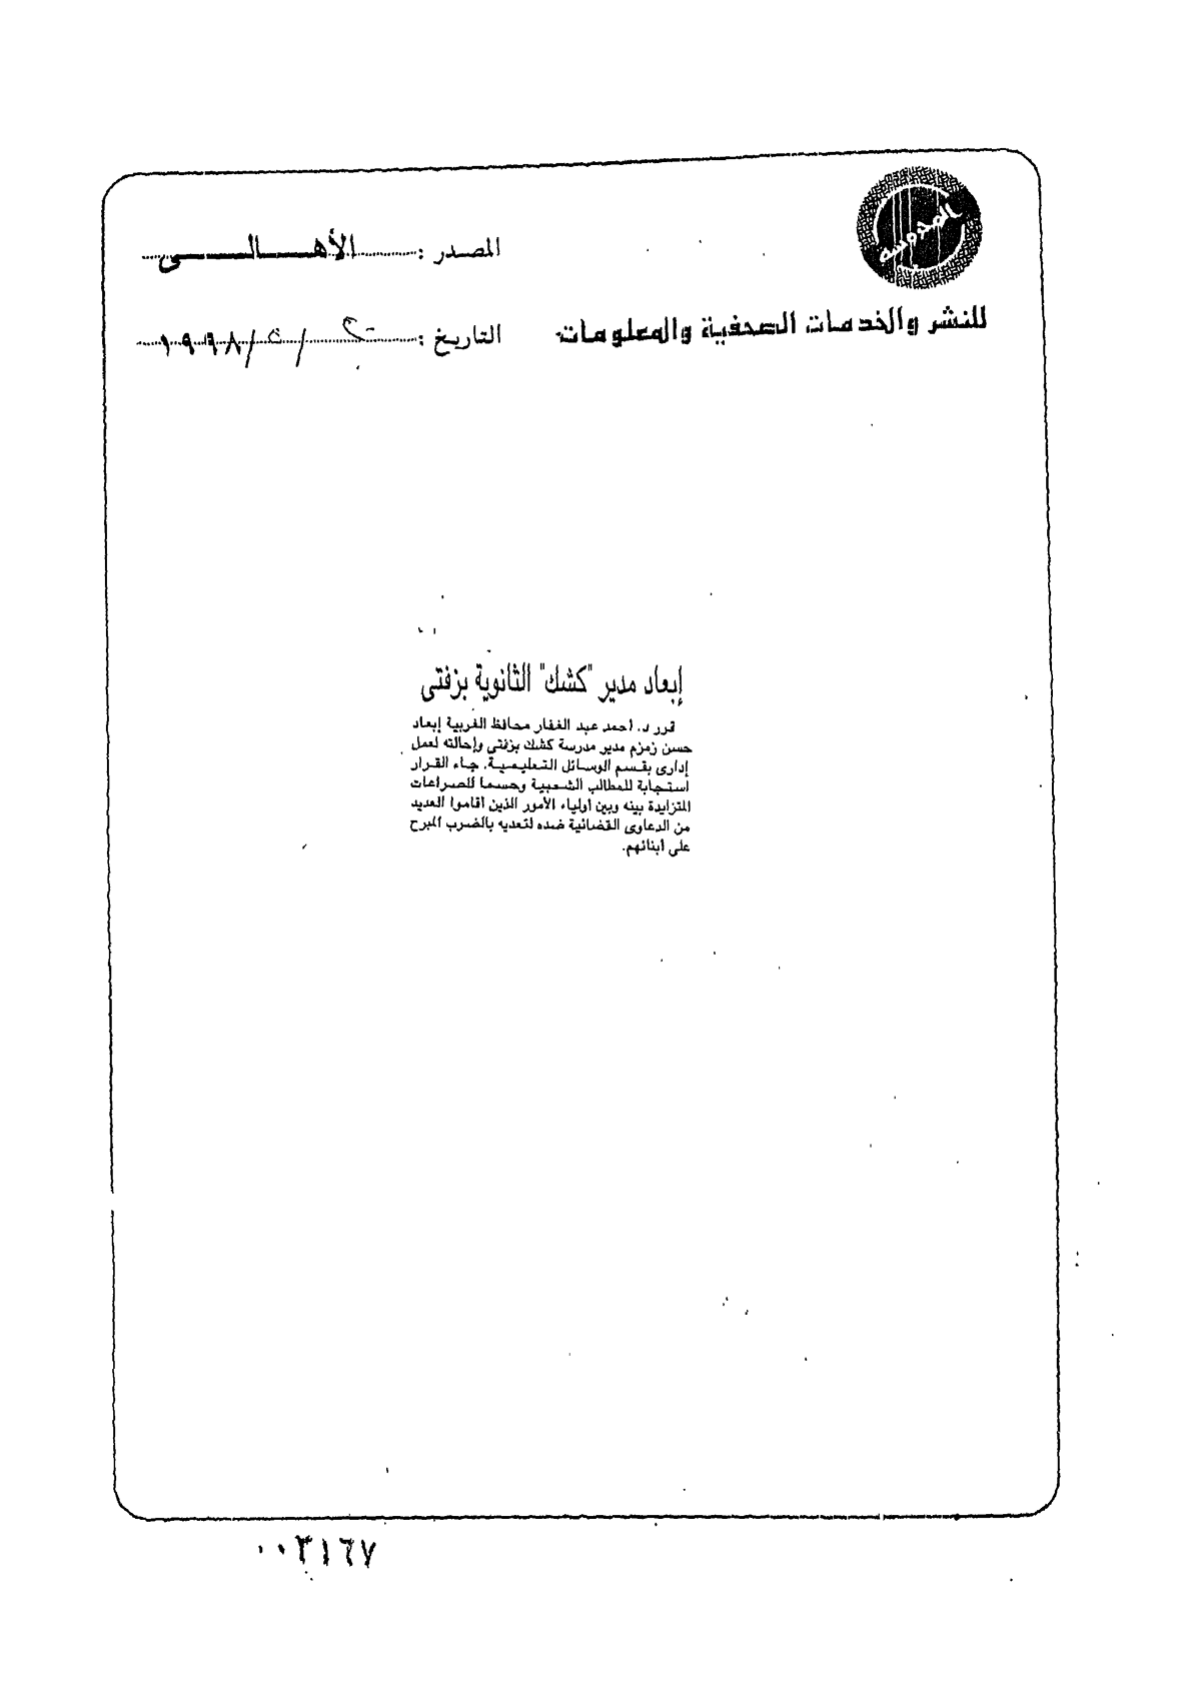 المحروسة
المصدر : الأهالى
للنشر والخدمات الصحفية والمعلومات
التاريخ : ٢٠ / ٥ / ١٩٩٨
إبعاد مدير "كشك" الثانوية بزفتى
قرر د. أحمد عبد الغفار محافظ الغربية إبعاد
حسن زمزم مدير مدرسة كشك بزفتى وإحالته لعمل
إدارى بقسم الوسائل التعليمية. جاء القرار
استجابة للمطالب الشعبية وحسما للصراعات
المتزايدة بينه وبين أولياء الأمور الذين أقاموا العديد
من الدعاوى القضائية ضده لتعديه بالضرب المبرح
على أبنائهم.
٠٠٣١٦٧